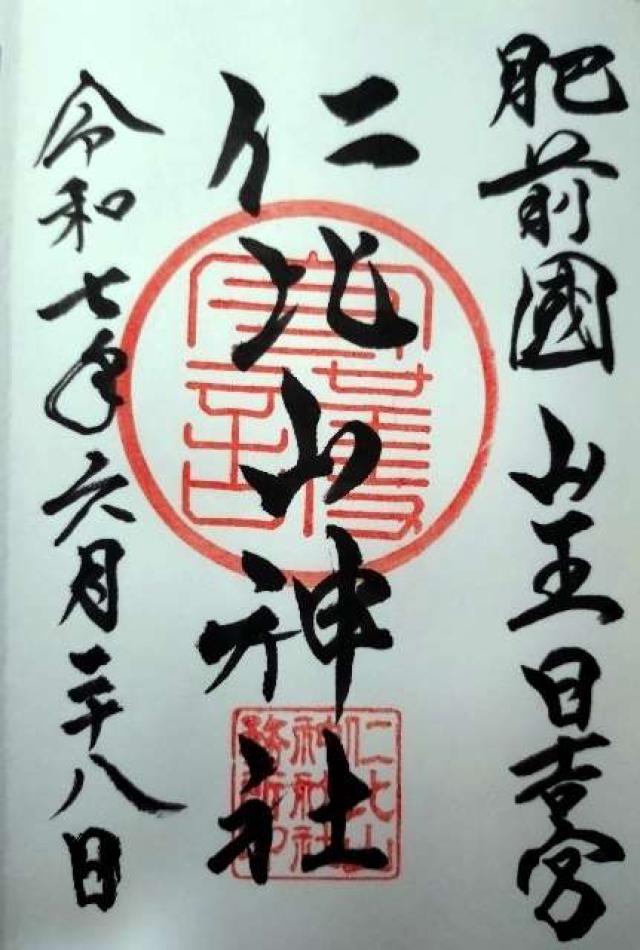 肥前國 山王日吉宮
仁比山神社
令和七年六月二十八日
仁比山
神社社
務所印